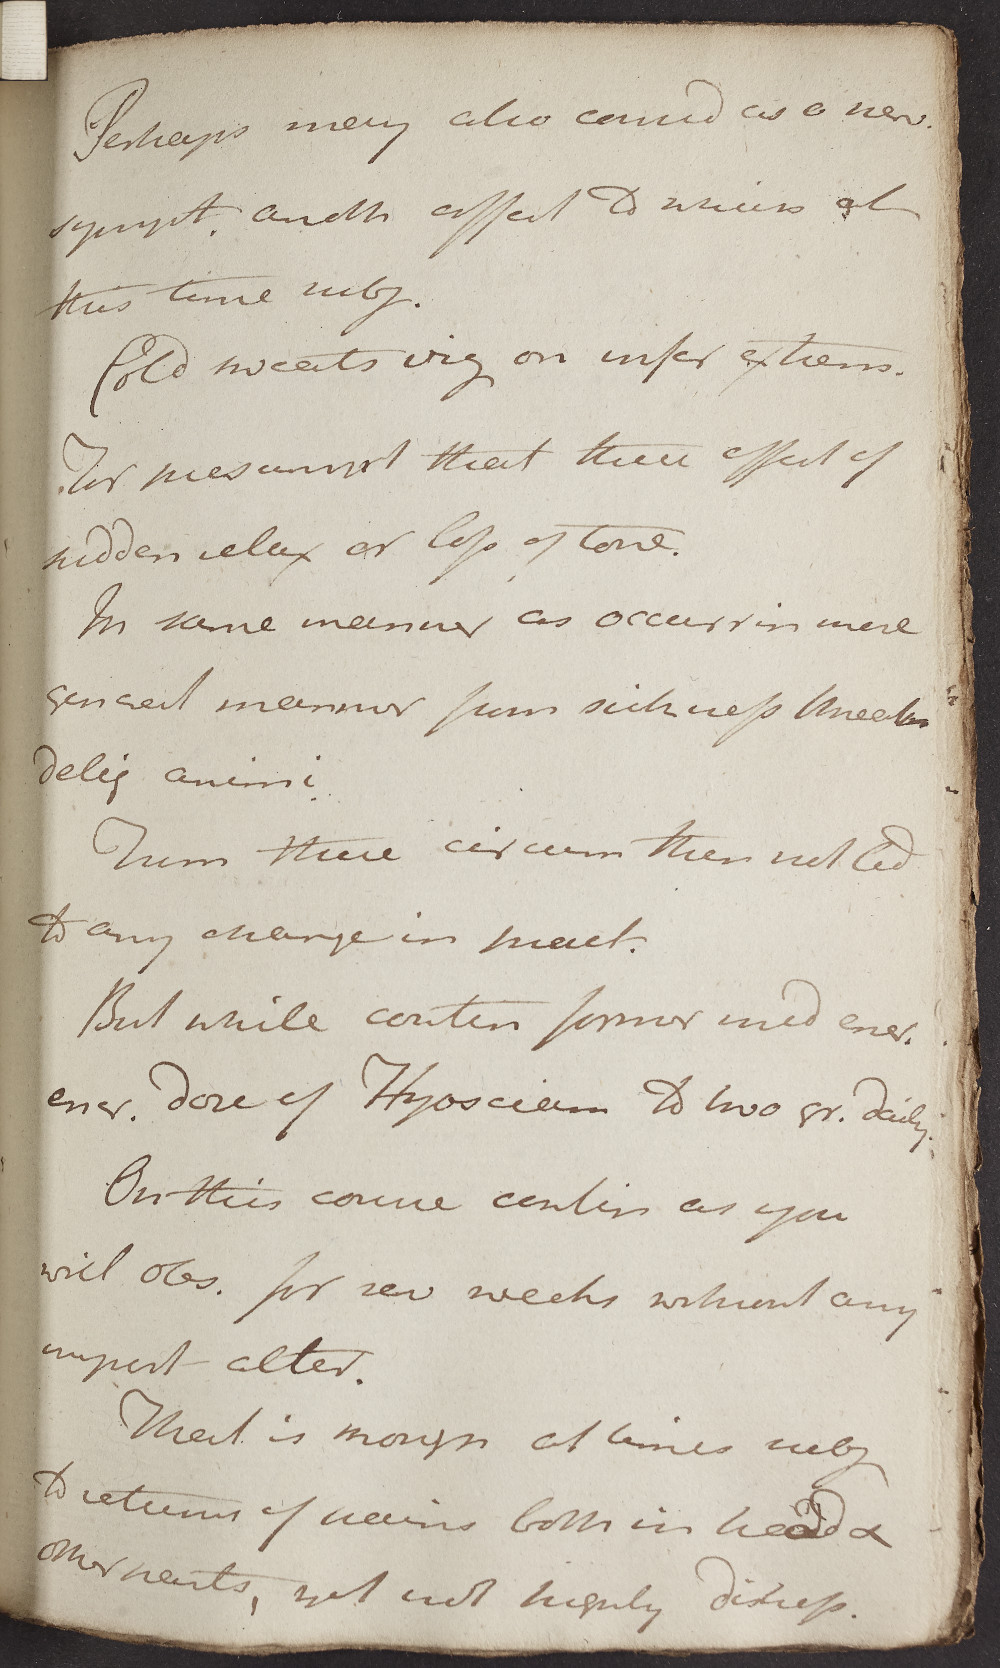 Perhaps may also consid as a nerv.
sympt. anoth effect to which at
this time subj.
Cold sweats viz on infer extrem.
For presumpt that these effect of
sudden relax or loss of tone.
In same manner as occurr in more
general manner from sickness threaten
deliq animi.
From these circum then not led
to any change in pract.
But while contin former med encr.
encr. dose of Hyosciam to two gr. daily.
On this course contin as you
will obs. for sev weeks without any
import alter.
That is though at times subj
to returns of pains both in head &
other parts, yet not highly distress.